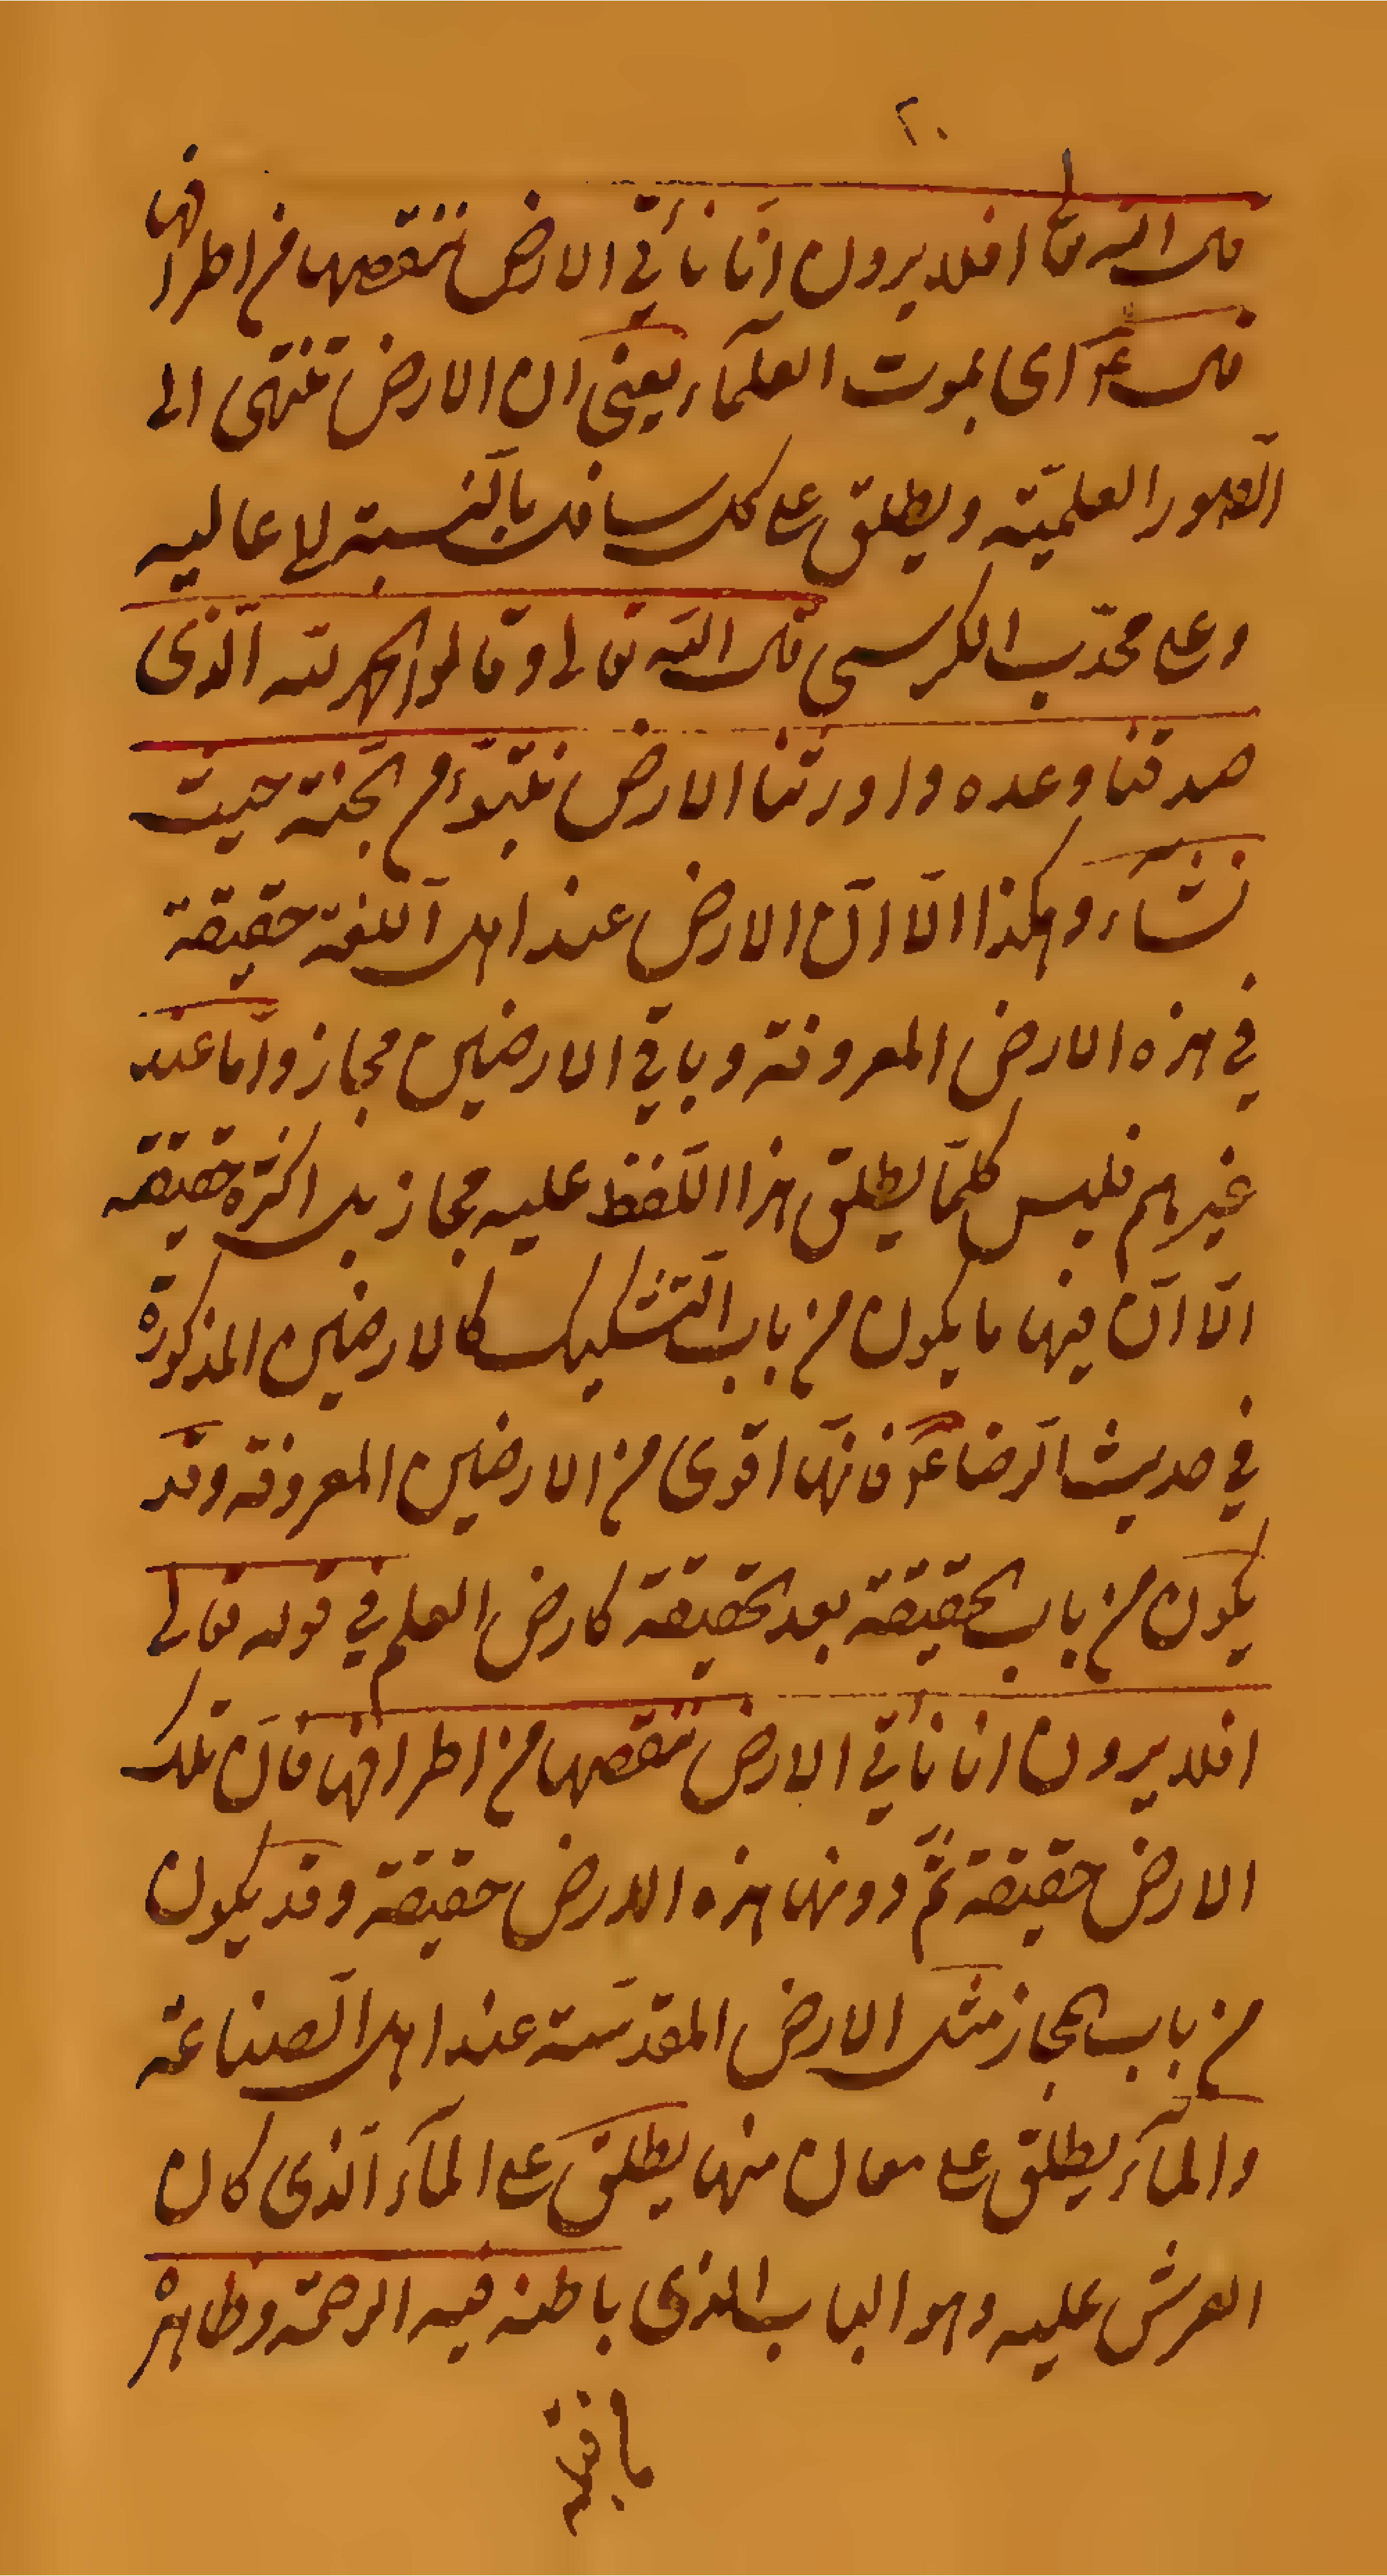 ٢٠
قال الله تعا افلا يرون انّا نأتى الارض ننقصها من اطرافها
قال ع اى بموت العلمآء يعنى ان الارض تنتهى الى
الصّور العلميّة ويطلق على كل سافل بالنّسبة الى عاليه
وعلى محدّب الكرسى قال الله تعالى وقالوا الحمد لله الّذى
صدقنا وعده واورثنا الارض نتبوّأ من الجنّة حيث
نشآء وهكذا الّا انّ الارض عند اهل اللّغة حقيقة
فى هذه الارض المعروفة وباقى الارضين مجاز وامّا عند
غيرهم فليس كلّما يطلق هذا اللّفظ عليه مجاز بل اكثره حقيقة
الّا انّ فيها ما يكون من باب التّشكيك كالارضين المذكورة
فى حديث الرّضا ع فانّها اقوى من الارضين المعروفة وقد
يكون من باب الحقيقة بعد الحقيقة كارض العلم فى قوله تعالى
افلا يرون انا نأتى الارض ننقصها من اطرافها فانّ تلك
الارض حقيقة ثمّ دونها هذه الارض حقيقة وقد يكون
من باب المجاز مثل الارض المقدّسة عند اهل الصّناعة
والمآء يطلق على معان منها يطلق على المآء الّذى كان
العرش عليه وهو الباب الذى باطنه فيه الرحمة وظاهره